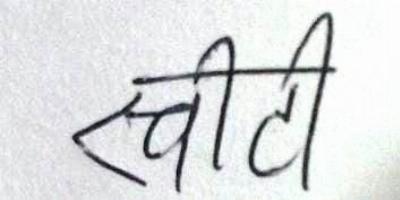 स्वीटी